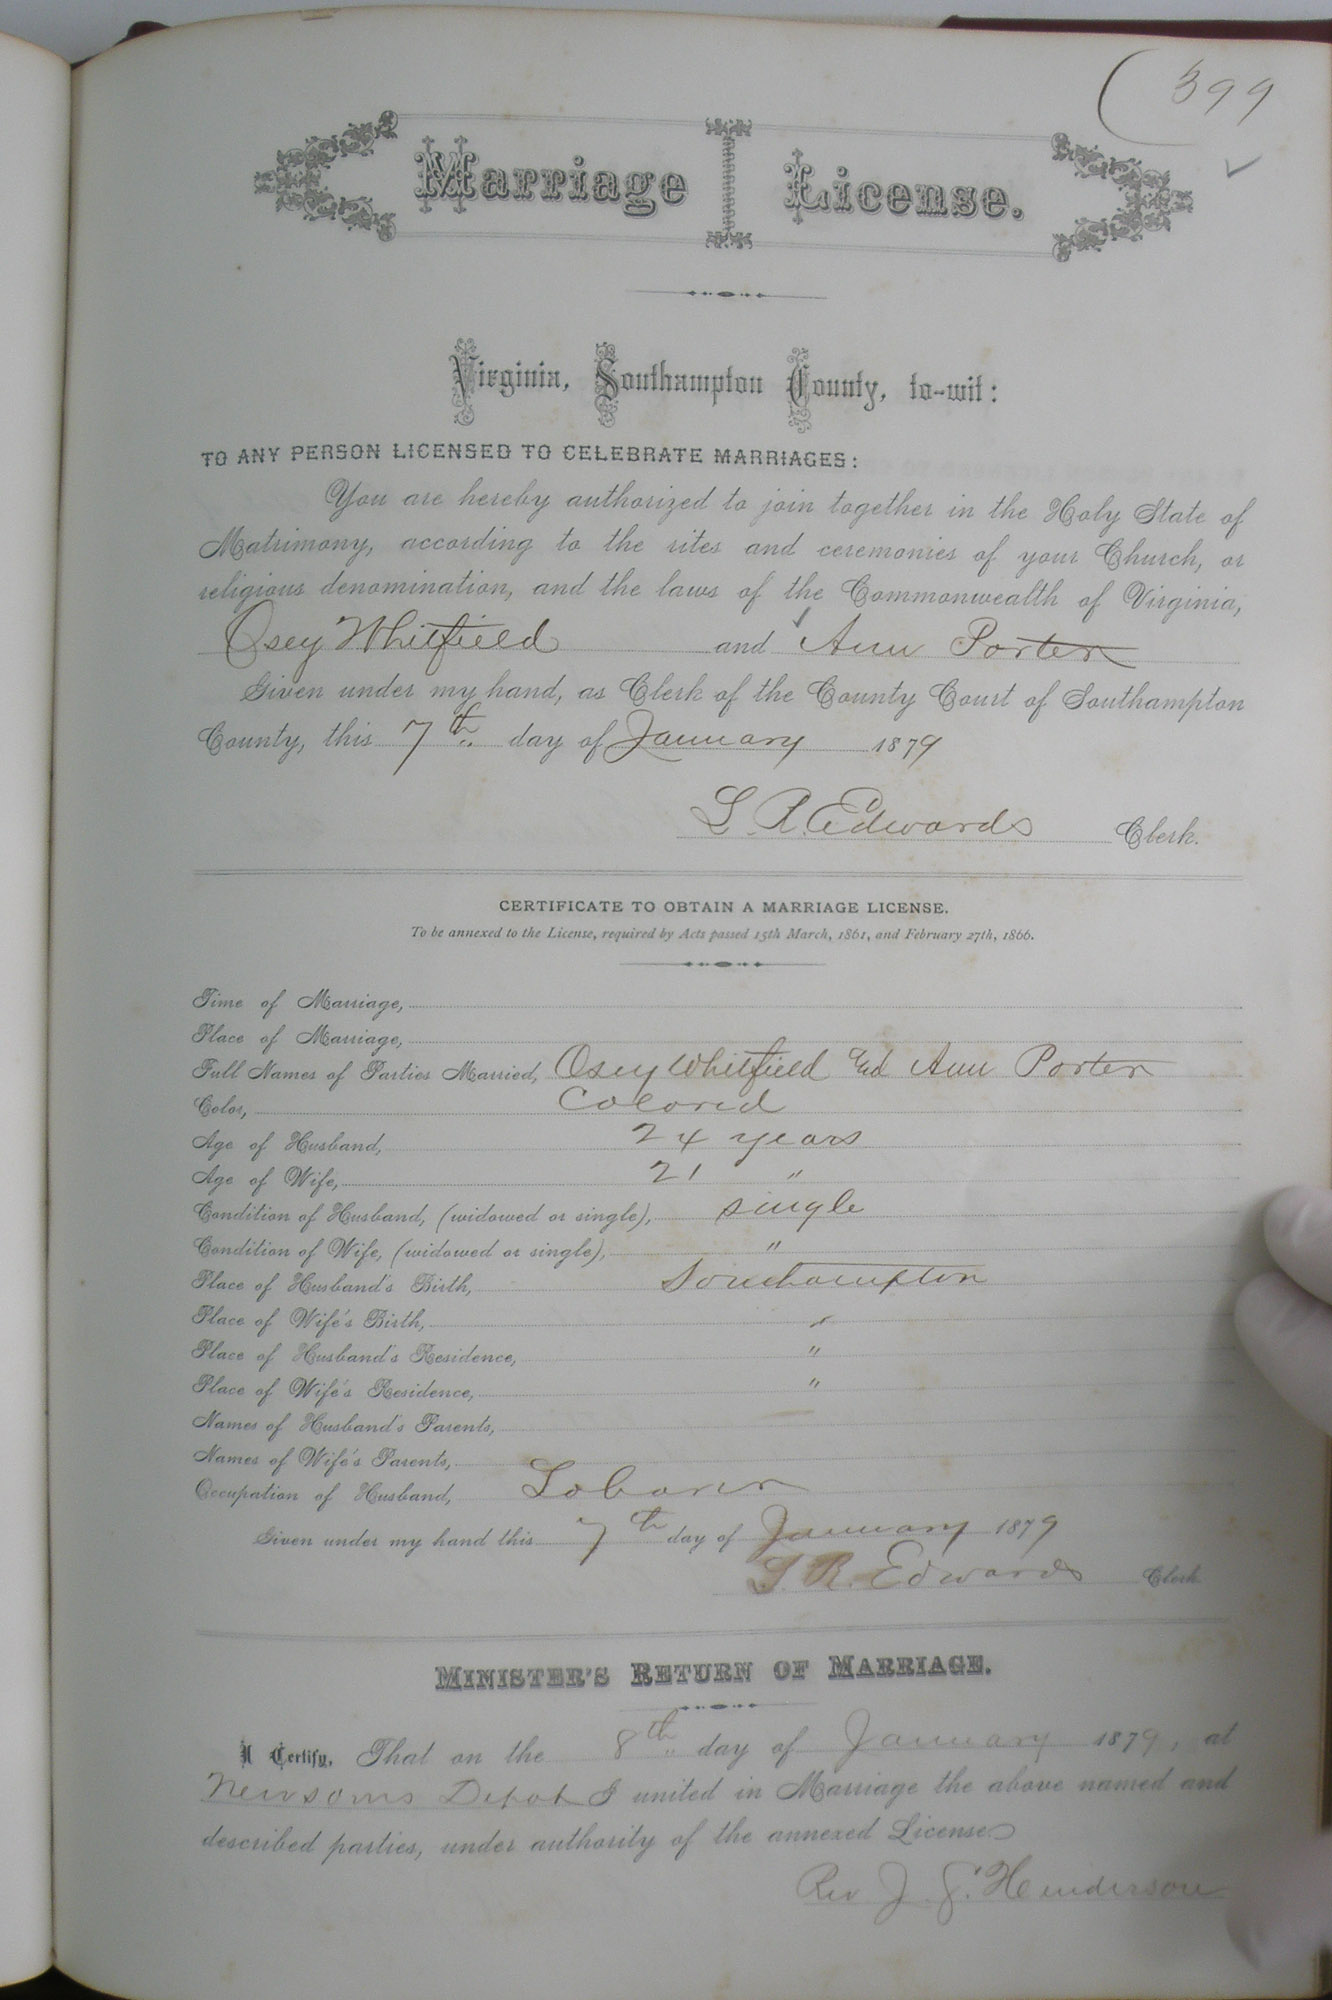 399
Marriage License.
Virginia, Southampton County, to-wit:
TO ANY PERSON LICENSED TO CELEBRATE MARRIAGES:
You are hereby authorized to join together in the Holy State of
Matrimony, according to the rites and ceremonies of your Church, or
religious denomination, and the laws of the Commonwealth of Virginia,
Osey Whitfield and Ann Porter
Given under my hand, as Clerk of the County Court of Southampton
County, this 7th day of January 1879
L. R. Edwards Clerk.
CERTIFICATE TO OBTAIN A MARRIAGE LICENSE.
To be annexed to the License, required by Acts passed 15th March, 1861, and February 27th, 1866.
Time of Marriage,
Place of Marriage,
Full Names of Parties Married, Osey Whitfield and Ann Porter
Color, Colored
Age of Husband, 24 years
Age of Wife, 21 "
Condition of Husband, (widowed or single), single
Condition of Wife, (widowed or single), "
Place of Husband's Birth, Southampton
Place of Wife's Birth, "
Place of Husband's Residence, "
Place of Wife's Residence, "
Names of Husband's Parents,
Names of Wife's Parents,
Occupation of Husband, Laborer
Given under my hand this 7th day of January 1879
L. R. Edwards Clerk
MINISTER'S RETURN OF MARRIAGE.
I Certify, That on the 8th day of January 1879, at
Newsoms Depot I united in Marriage the above named and
described parties, under authority of the annexed License
Rev J. G. Henderson